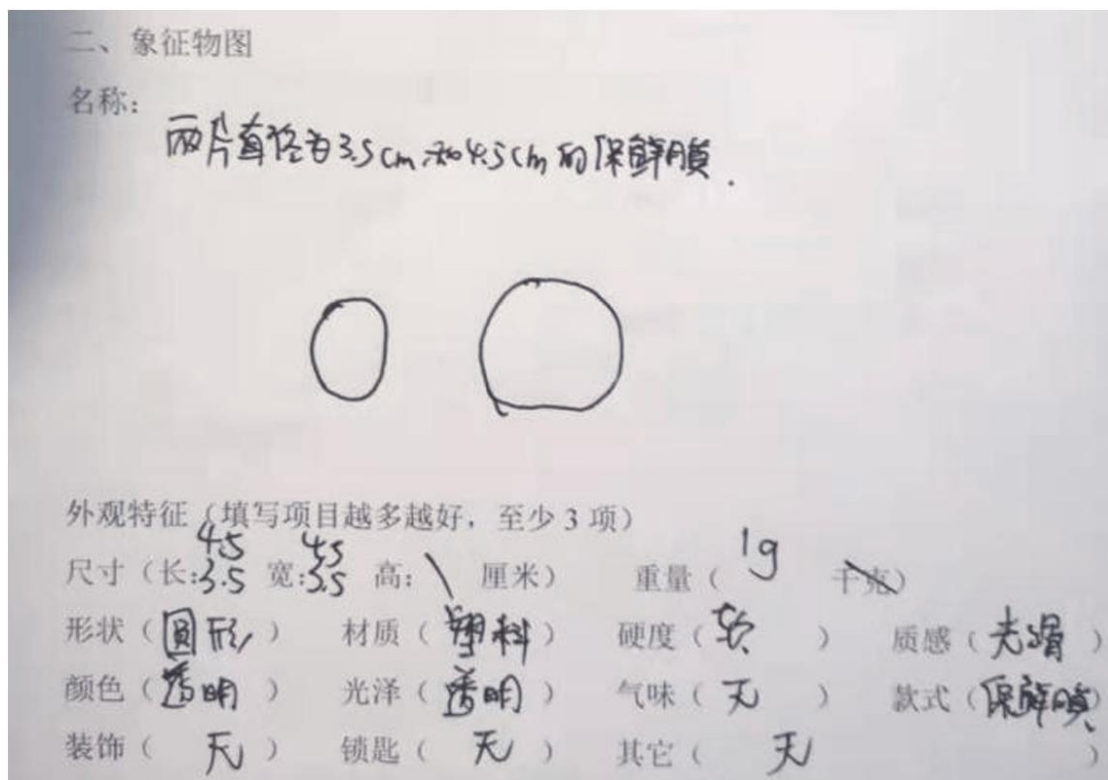 二、象征物图
名称：
两片直径为3.5cm和4.5cm的保鲜膜.
外观特征（填写项目越多越好，至少3项）
4.5 4.5 1g
尺寸（长:3.5 宽:3.5 高:\ 厘米） 重量（ 千克）
形状（圆形） 材质（塑料） 硬度（软） 质感（光滑）
颜色（透明） 光泽（透明） 气味（无） 款式（保鲜膜）
装饰（无） 锁匙（无） 其它（无）